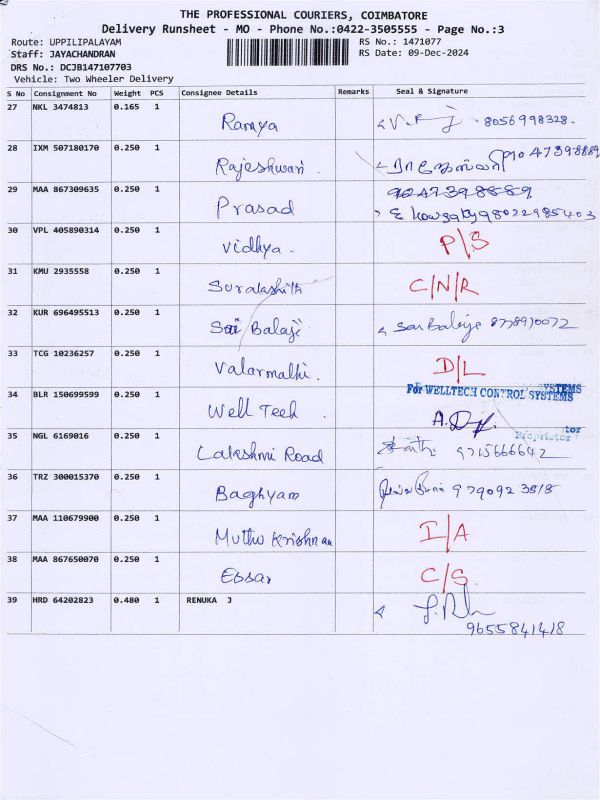 THE PROFESSIONAL COURIERS, COIMBATORE
Delivery Runsheet - MO - Phone No.:0422-3505555 - Page No.:3
Route: UPPILIPALAYAM RS No.: 1471077
Staff: JAYACHANDRAN RS Date: 09-Dec-2024
DRS No.: DCJB147107703
Vehicle: Two Wheeler Delivery
S No Consignment No Weight PCS Consignee Details Remarks Seal & Signature
27 NKL 3474813 0.165 1 Ramya 8056998328.
28 IXM 507180170 0.250 1 Rajeshwari
29 MAA 867309635 0.250 1 Prasad
30 VPL 405890314 0.250 1 Vidhya. P/S
31 KMU 2935558 0.250 1 C/N/R
32 KUR 696495513 0.250 1 Sai Balaji
33 TCG 10236257 0.250 1 Valarmathi. D/L
34 BLR 150699599 0.250 1 Well Tech For WELLTECH CONTROL SYSTEMS
Proprietor
35 NGL 6169016 0.250 1 Lakshmi Road 9715666642
36 TRZ 300015370 0.250 1 Baghyam 979092 3818
37 MAA 110679900 0.250 1 Muthu Krishnan I/A
38 MAA 867650070 0.250 1 Essar C/S.
39 HRD 64202823 0.480 1 RENUKA J
9655841418